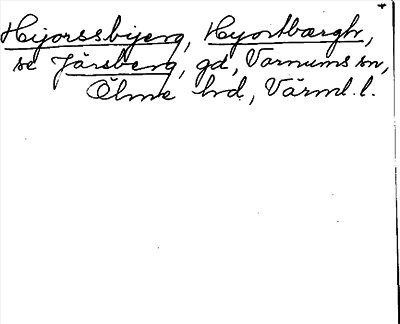 Hijorssbijerg, Hyortbærgh,
se Järsberg, gd, Varnums sn,
Ölme hd, Värml. l.